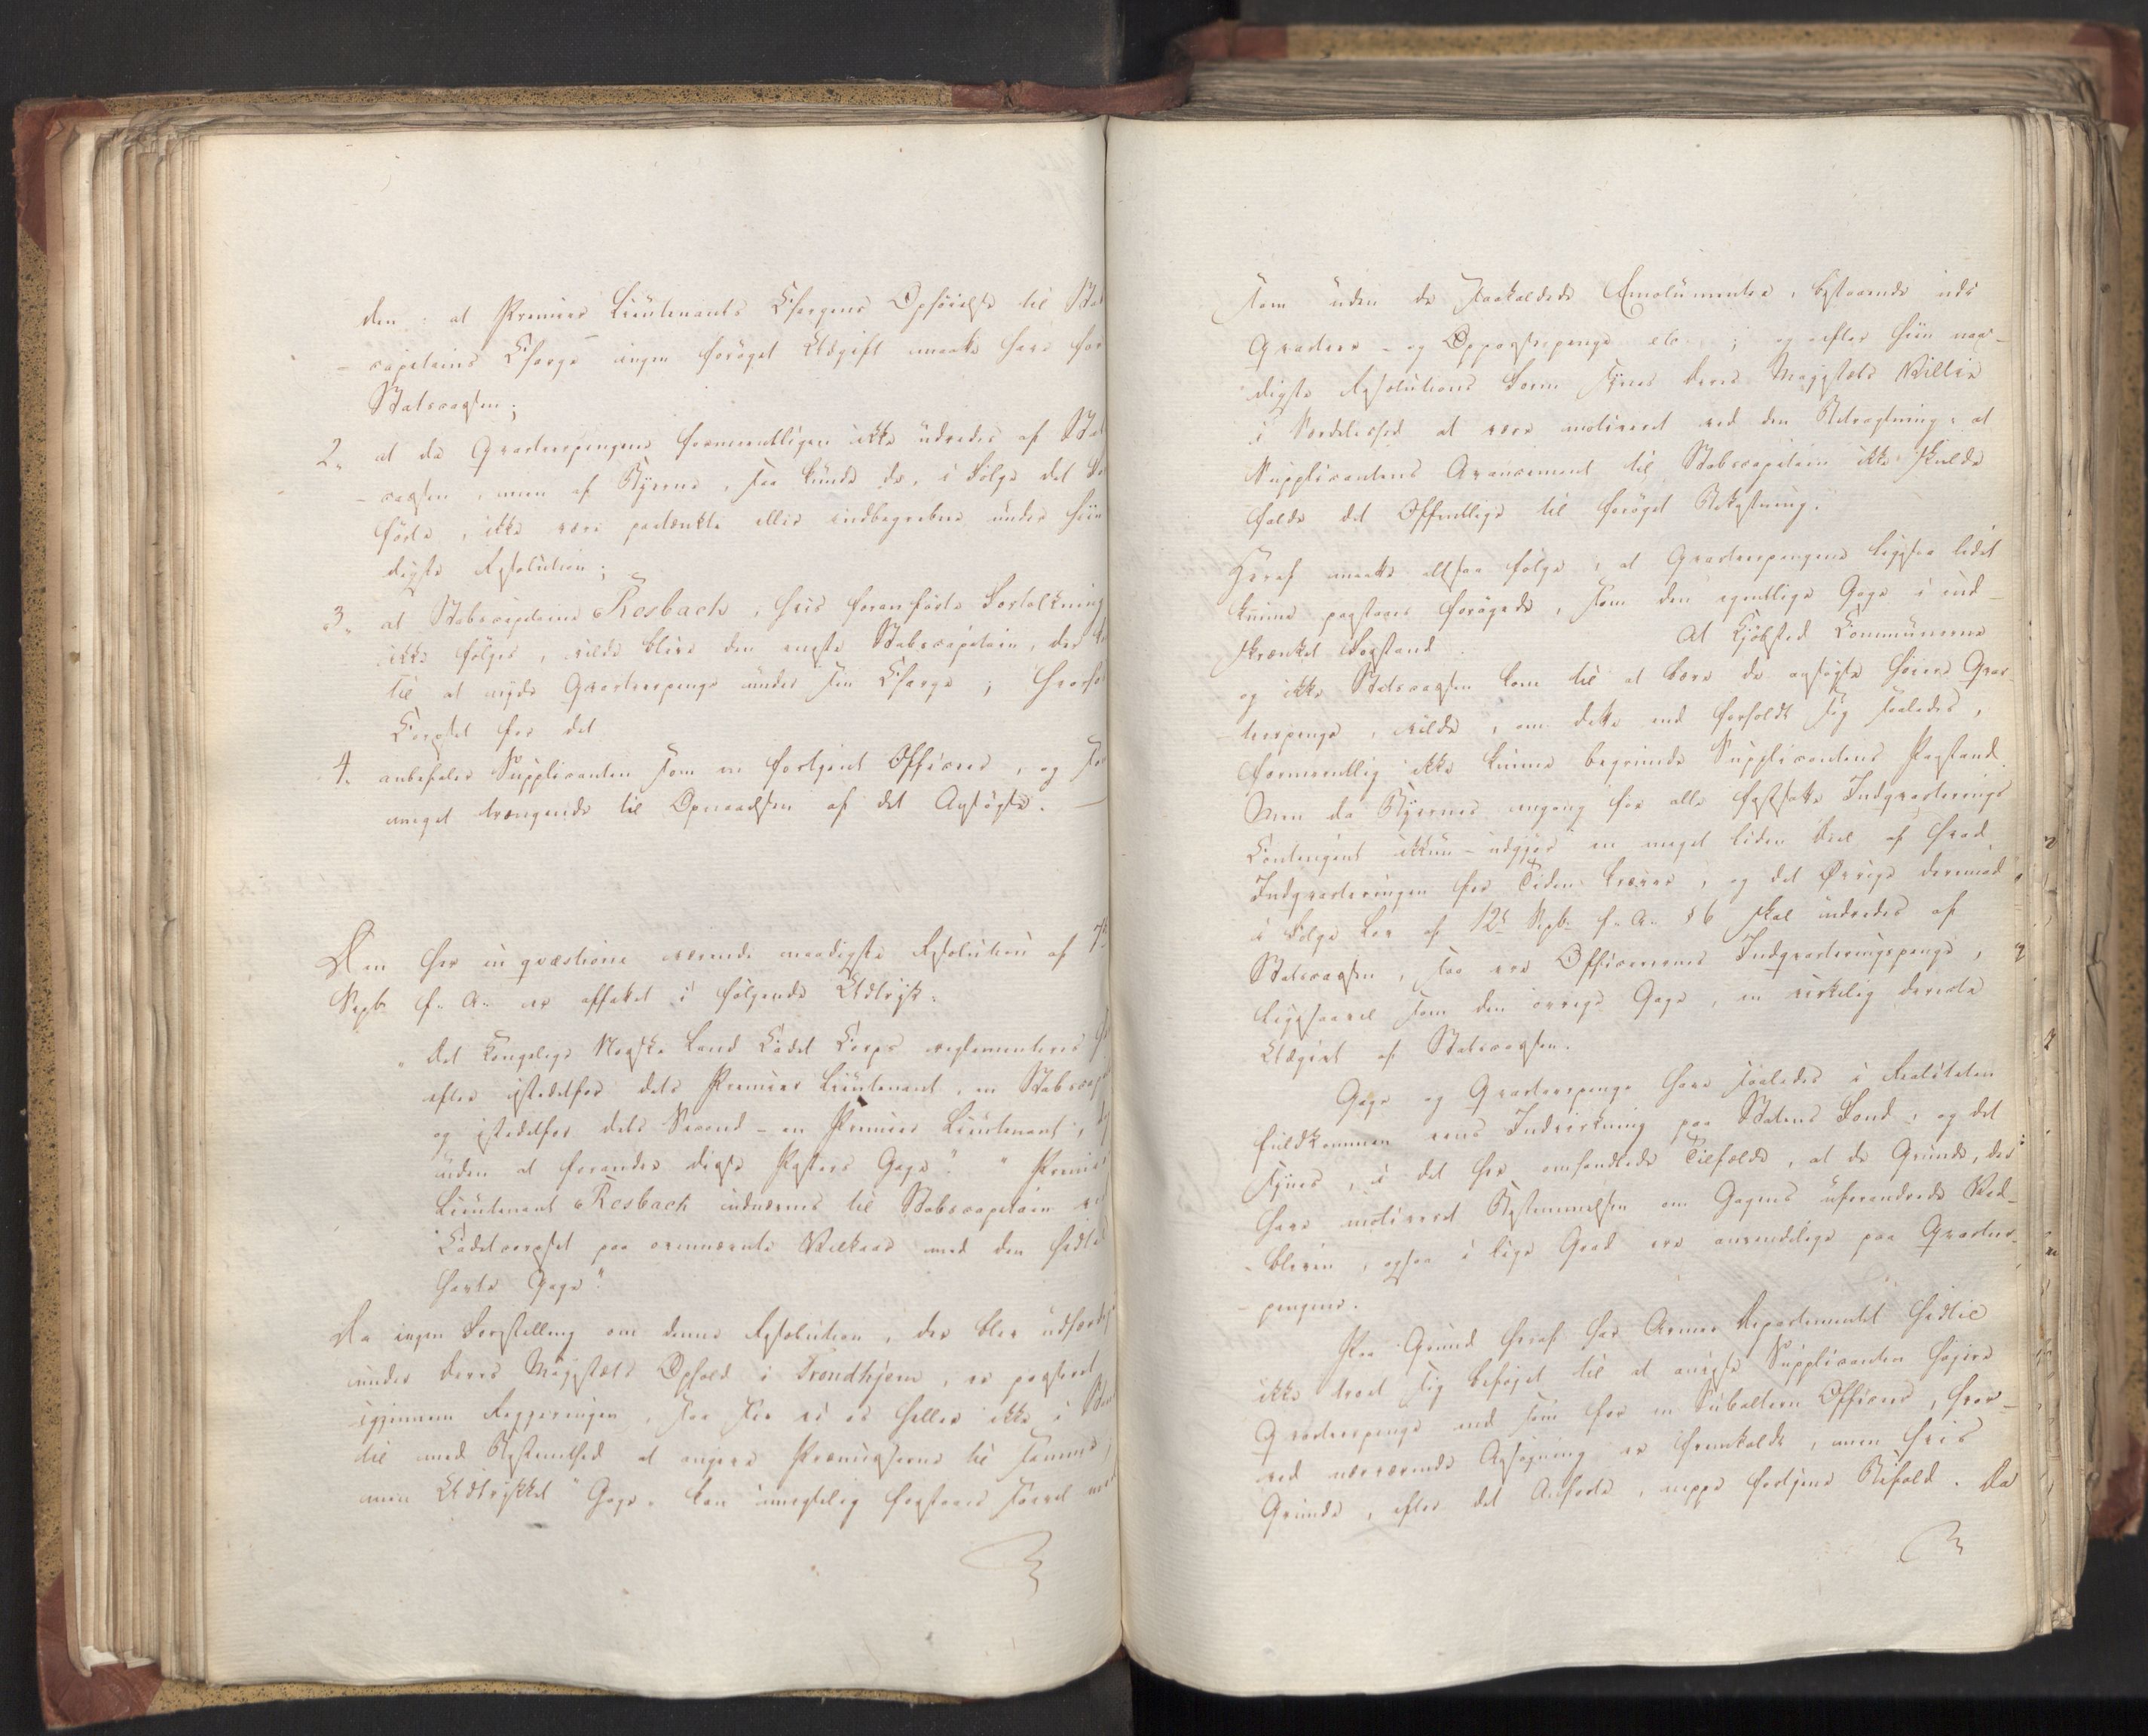 den: at Premier Lieutenants Chargens Ophöielse til Stabs
capitains Charge ingen forøget Udgift maatte have for
Statscassen;
2, at da Qvarteerpengene formeentligen ikke udredes af Stats
-cassen, men af Byerne, saa kunde de, i Følge det An
førte, ikke være paatænkte eller indbegrebne under hiin
digste Resolution;
3, at Stabscapitaine Rosbach, hvis foranførte Fortolkning
ikke følges, vilde blive den eneste Stabscapitain, der
til at nyde Qvarteerpenge under sin Charge; hvorfor
Corpset for det
4. anbefaler Supplicanten som en fortjent Officeer, og som
meget trængende til Opnaaelsen af det Ansøgte. —
Den her in qvæstione værende naadigste Resolution af 7de
Septbr f. A. er affattet i følgende Udtryk:
"Det Kongelige Norske Land Cadet Corps reglementeres her
efter istedetfor dets Premier Lieutenant, en Stabscapi
og istedetfor dets Second - en Premier Lieutenant,
uden at forandre disse Posters Gage." "Premier
Lieutenant Rosbach udnævnes til Stabscapitain ved
Cadetcorpset paa ovennævnte Vilkaar med den hidtil
havte Gage".
Da ingen Forestilling om denne Resolution, der blev udfærdiget
under Deres Majestæts Ophold i Trondhjem, er passeret
igjennem Regjeringen, saa see vi os heller ikke i Stand
til med Bestemthed at angive Præmisserne til samme;
men Udtrykket "Gage" kan unegtelig forstaaes saavel med
som uden de saakaldede Emolumenter, bestaaende udi
Qvarteer- og Oppasserpenge etc.; og efter hiin naa-
digste Resolutions Form synes Deres Majestæts Villie
i Særdeleshed at være motiveret ved den Betragtning: at
Supplicantens Avancement til Stabscapitain ikke skulde
falde det Offentlige til forøget Bekostning.
Heraf maatte altsaa følge, at Qvarteerpengene ligesaa lidet
kunne paastaaes forøgede, som den egentlige Gage i ind-
skrænket Forstand. At Kjøbsted Communerne
og ikke Statscassen kom til at bære de ansøgte høiere Qvar
teerpenge, vilde, om dette end forholdt sig saaledes,
formeentlig ikke kunne begrunde Supplicantens Paastand.
Men da Byernes engang for alle fastsatte Indqvarterings
Contingent ikkun udgjør en meget liden Deel af hvad
Indqvarteringen for Tiden kræver, og det Øvrige derimod
i Følge Lov af 12te Septbr f. A. § 6 skal udredes af
Statscassen, saa ere Officerernes Indqvarteringspenge,
ligesaavel som den øvrige Gage, en virkelig directe
Udgivt af Statscassen.
Gage og Qvarteerpenge have saaledes i Realiteten
fuldkommen eens Indvirkning paa Statens Fond; og det
synes, i det her omhandlede Tilfælde, at de Grunde, der
have motiveret Bestemmelsen om Gagens uforandrede Ved-
-bliven, ogsaa i lige Grad ere anvendelige paa Qvarteer-
-pengene.
Paa Grund heraf har Armee Departementet hidtil
ikke troet sig beføjet til at anvise Supplicanten højere
Qvarteerpenge end som for en Subaltern Officeer, hvor-
ved nærværende Ansøgning er fremkaldt, men hvis
Grunde, efter det Anførte, neppe fortjene Bifald. Da